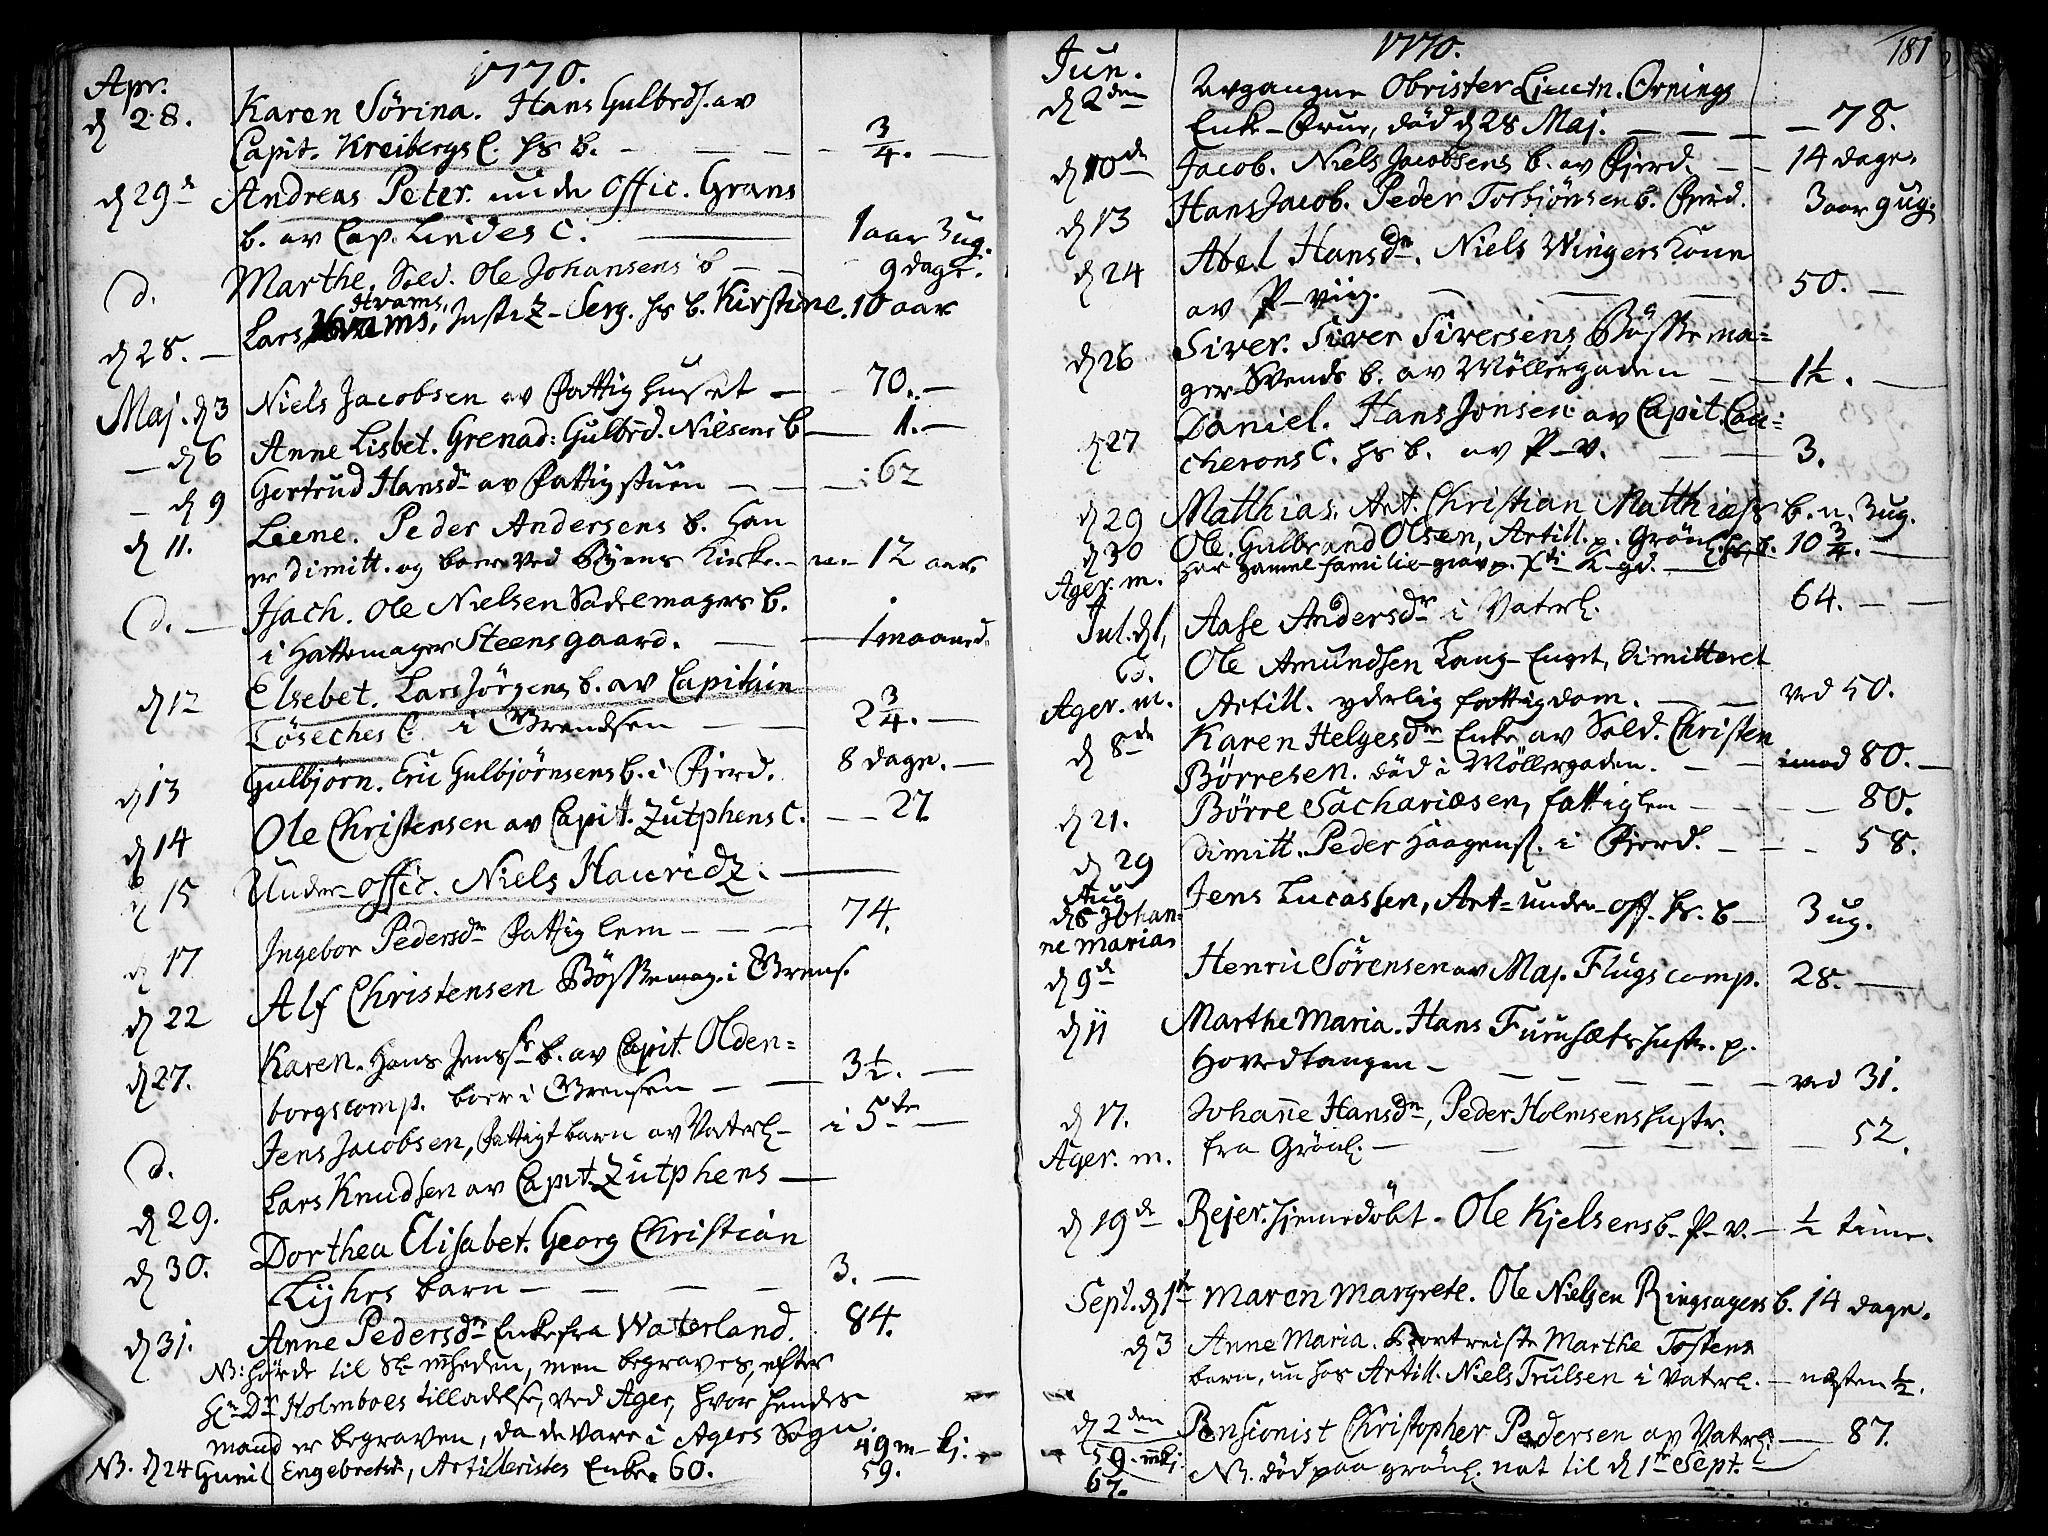 1770.
Apr.
d 28. Karen Sörina. Hans Gulbrds. av
Capit. Kreibergs C. hs b. 3/4.
d 29d Andreas Peter. unde Offic. Grans
b. av Cap. Lindes C. 1 aar 3 ug.
d. Marthe. Sold. Ole Johansens b 9 dage.
Hvams,
d 28. Lars Hvams, Justiz-Serg. hs b. Kirstine. 10 aar
Maj. d 3 Niels Jacobsen av Fattighuset 70.
d 6 Anne Lisbet. Grenad: Gulbrd. Nilsens b 1.
d 9 Gertrud Hansdr av Fattigstuen 62
d 11. Leene. Peder Andersens b. han
er dimitt. og boer ved Byens Kirke. 12 aar.
d. Isach. Ole Nielsen Sadelmagers b.
i Hattemager Steensgaard. 1 maaned.
d 12 Elsebet. Lars Jörgens b. av Capitain
Töseches C. i Grendsen 2 3/4.
d 13 Gulbjörn. Eric Gulbjörnsens b. i Pierd. 8 dage.
d 14 Ole Christensen av Capit. Zutphens C. 27
d 15 Under-offic. Niels Hauridz.
d 17 Ingebor Pedersdr Fattiglem 74.
d 22 Alf Christensen Bösßemag. i Grens.
d 27. Karen. Hans Jenss b. av Capit. Olden=
borgs comp. boer i Grensen 3 1/2.
d. Jens Jacobsen, Fattigt barn av Vaterl i 5te
d 29. Lars Knudsen av Capit Zutphens
d 30. Dorthea Elisabet. Georg Christian
Lyhrs barn 3.
d 31. Anne Pedersdr Enke fra Waterland. 84.
NB: hörde til Stmheden, men begraves, efter
Hr Dr Holmboes tilladelse, ved Ager, hvor hendes
mand er begraven, da de vare i Agers Sogn.
49 m- kj.
NB. d 24 Gunil Engebretsd, Artilleristes Enke. 60. 59.
1770. 181
Jun.
d 2den Avgangne Obrister Lieutn. Ornings
Enke-Frue, död d 28 Maj. 78.
d 10de Jacob. Niels Jacobsens b. av Pierd. 14 dage.
d 13 Hans Jacob. Peder Torbjönsen b. Pierd. 3 aar 9 ug.
d 24 Abel Hansdr. Niels Wingers Kone
av P-vig. 50.
d 26 Siver. Siver Siversens Bösßema=
ger-Svends b. av Möllergaden 1 1/2.
d 27 Daniel. Hans Jonsen av Capit. Cau=
cherons C. hs b. av P-v. 3.
d 29 Matthias. Art. Christian Matthiæss b. 3 ug.
d 30 Ole. Gulbrand Olsen, Artill. p. Grönl. hs b. 10 3/4.
Ager. m. har gamel familie-grav p.
Jul. d 1, Aase Andersdr i Vaterl. 64.
d. Ole Amundsen Lang-Enget, dimitteret
Ager. m. Artill. yderlig fattigdom. ved 50.
d 8de Karen Helgesdr Enke av Sold. Christen
Börresen. död i Möllergaden. imod 80.
d 21. Börre Sachariæsen, fattiglem 80.
d 29 dimitt. Peder Haagens. i Pierd. 58.
Aug
d 5 Johan= Jens Lucassen, Art=under-off. hs. b 3 ug.
ne Maria
d 9d Henric Sörensen av Maj. Flugs comp. 28.
d 11 Marthe Maria. Hans Furusæts hustr. p.
Hovedtangen ved 31.
d 17. Johañe Hansdr, Peder Holmsens hustr.
Ager. m. fra Grönl. 52.
d 19de Rejer. hjemedöbt. Ole Kjelsens b. P-v. 1/2 time.
Sept. d 1t Maren Margrete. Ole Nielsen Ringsagers b. 14 dage.
d 3 Anne Maria. Bortreiste Marthe Tostens
barn, nu hos Artill. Niels Trulsen i Vaterl. næsten 1/2.
d 2den Pensionist Christopher Pedersen av Vaterl. 87.
59. mkj. NB. död paa grönl. nat til d 1te Sept.
67.